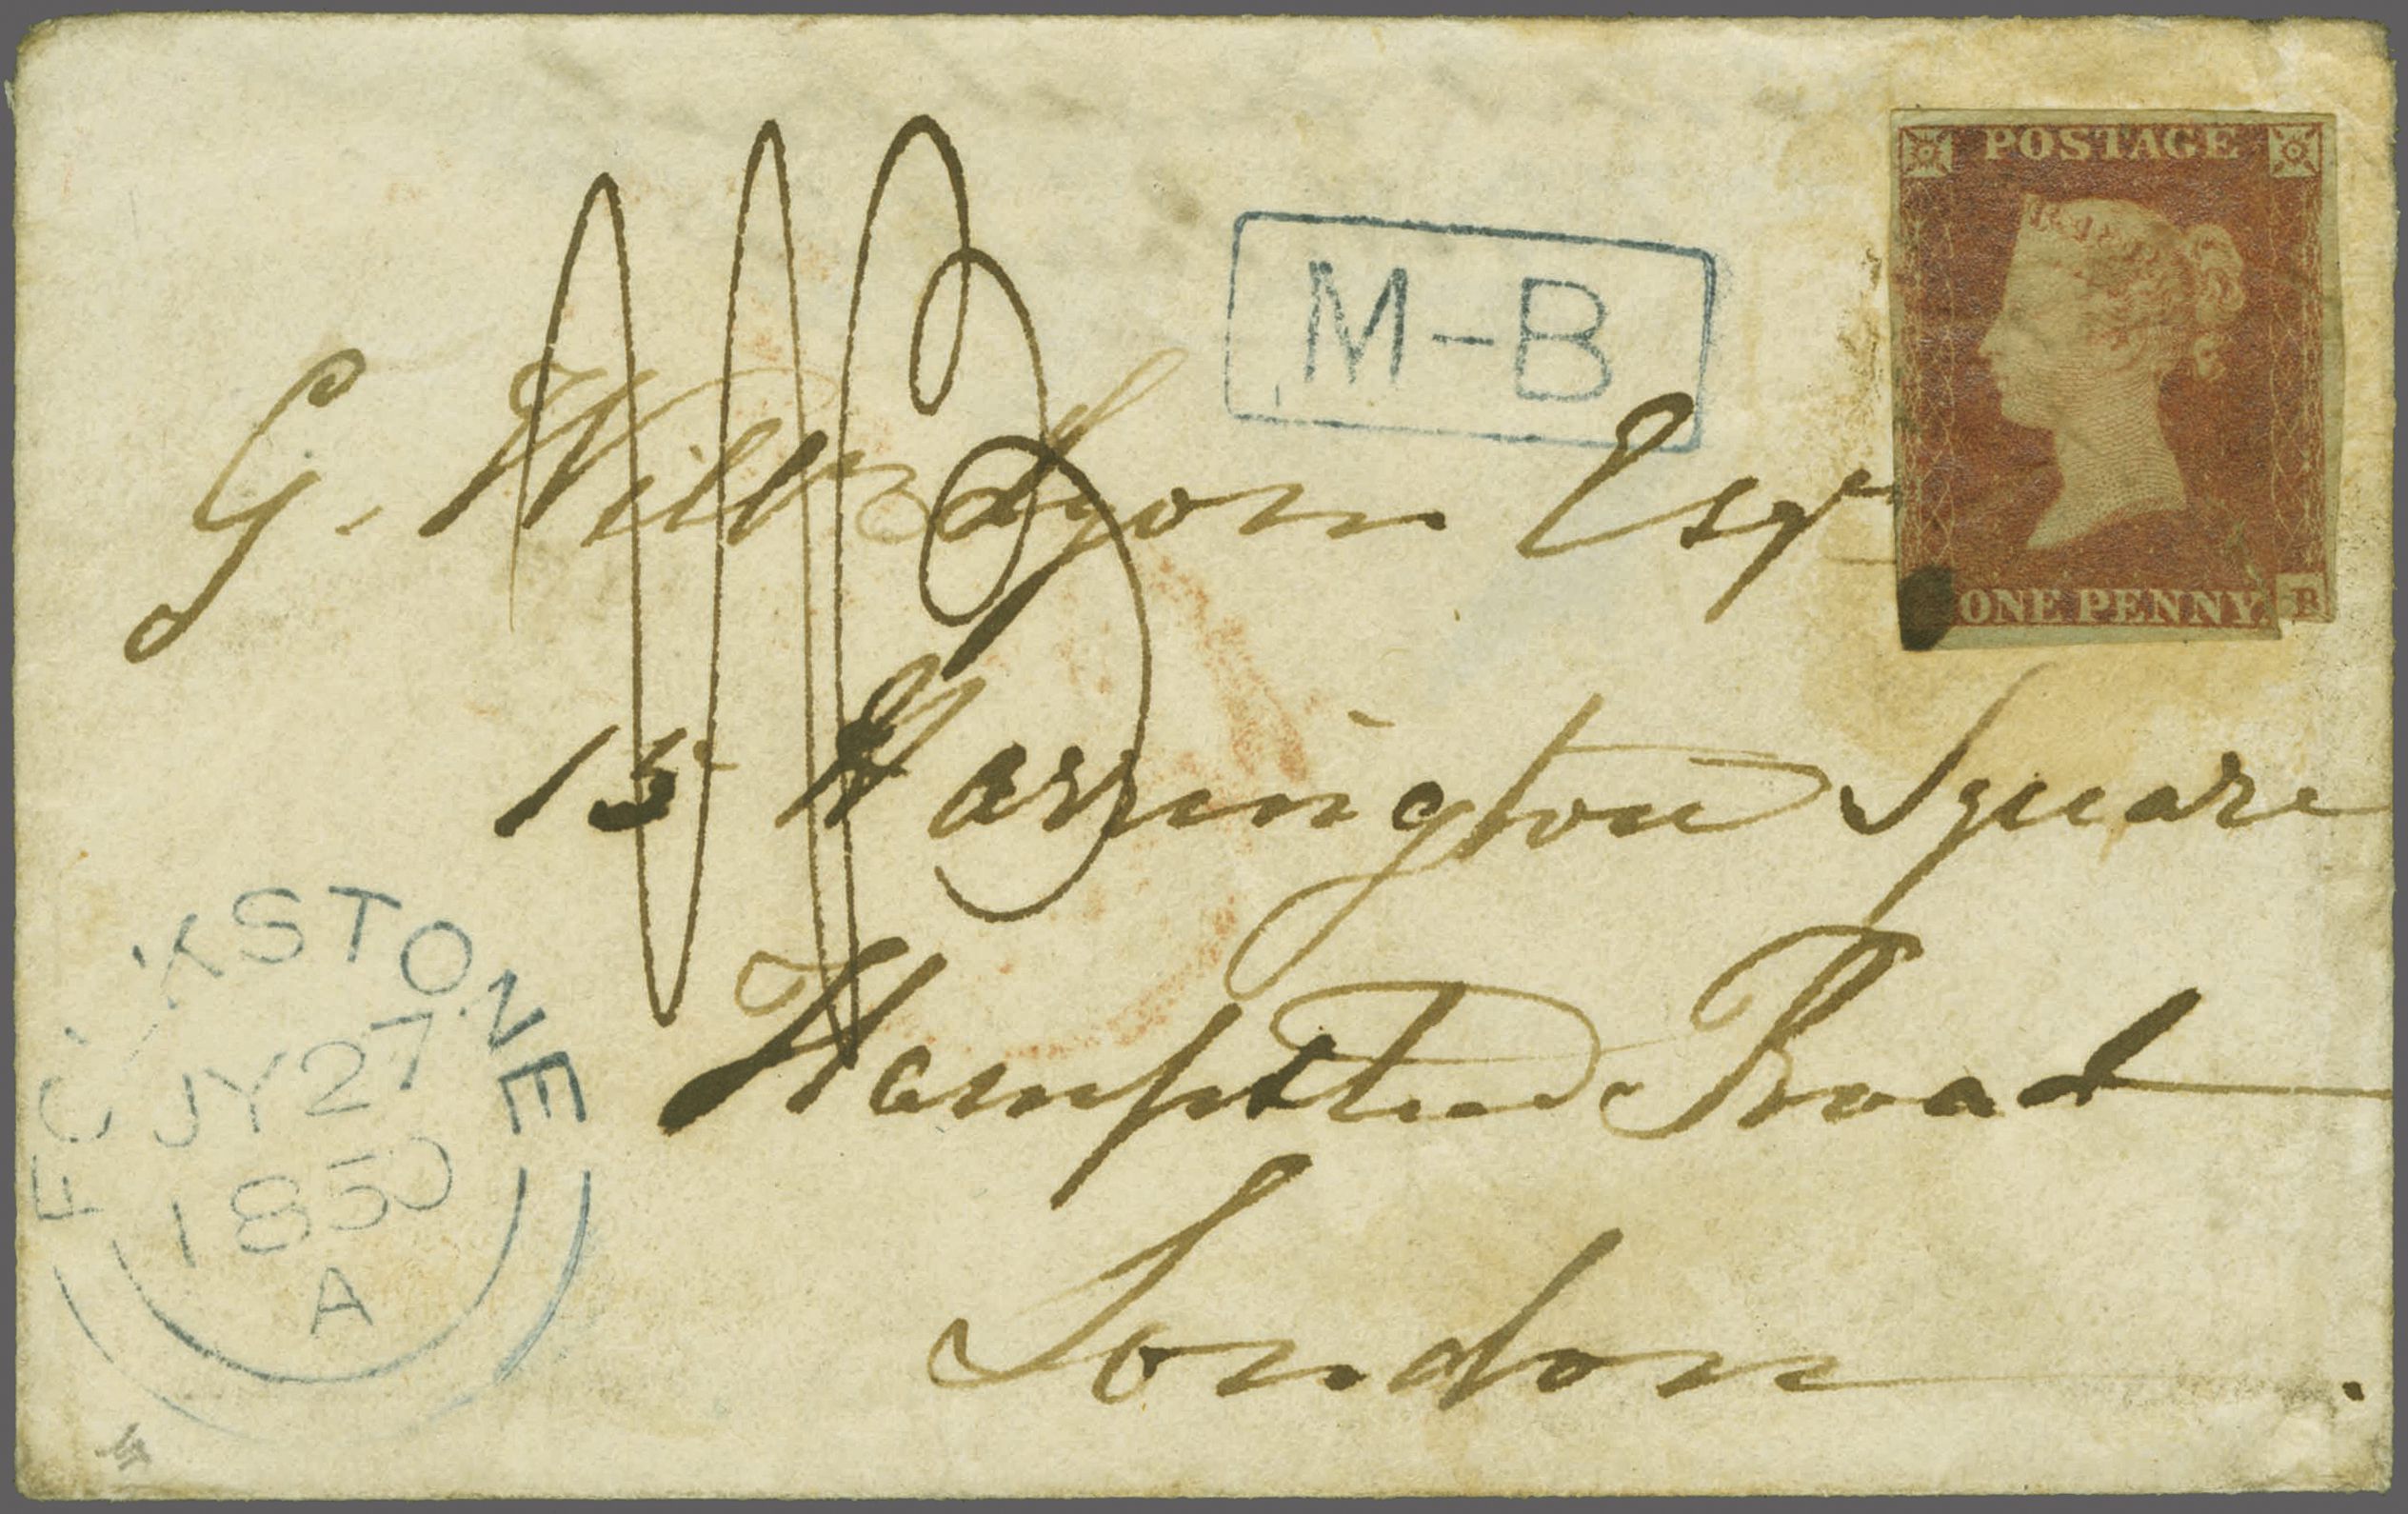 POSTAGE
M-B
G. Esqr
ONE PENNY.
B
15 Harrington Square
Hampstead Road
London
FOLKSTONE
JY 27
1850
A